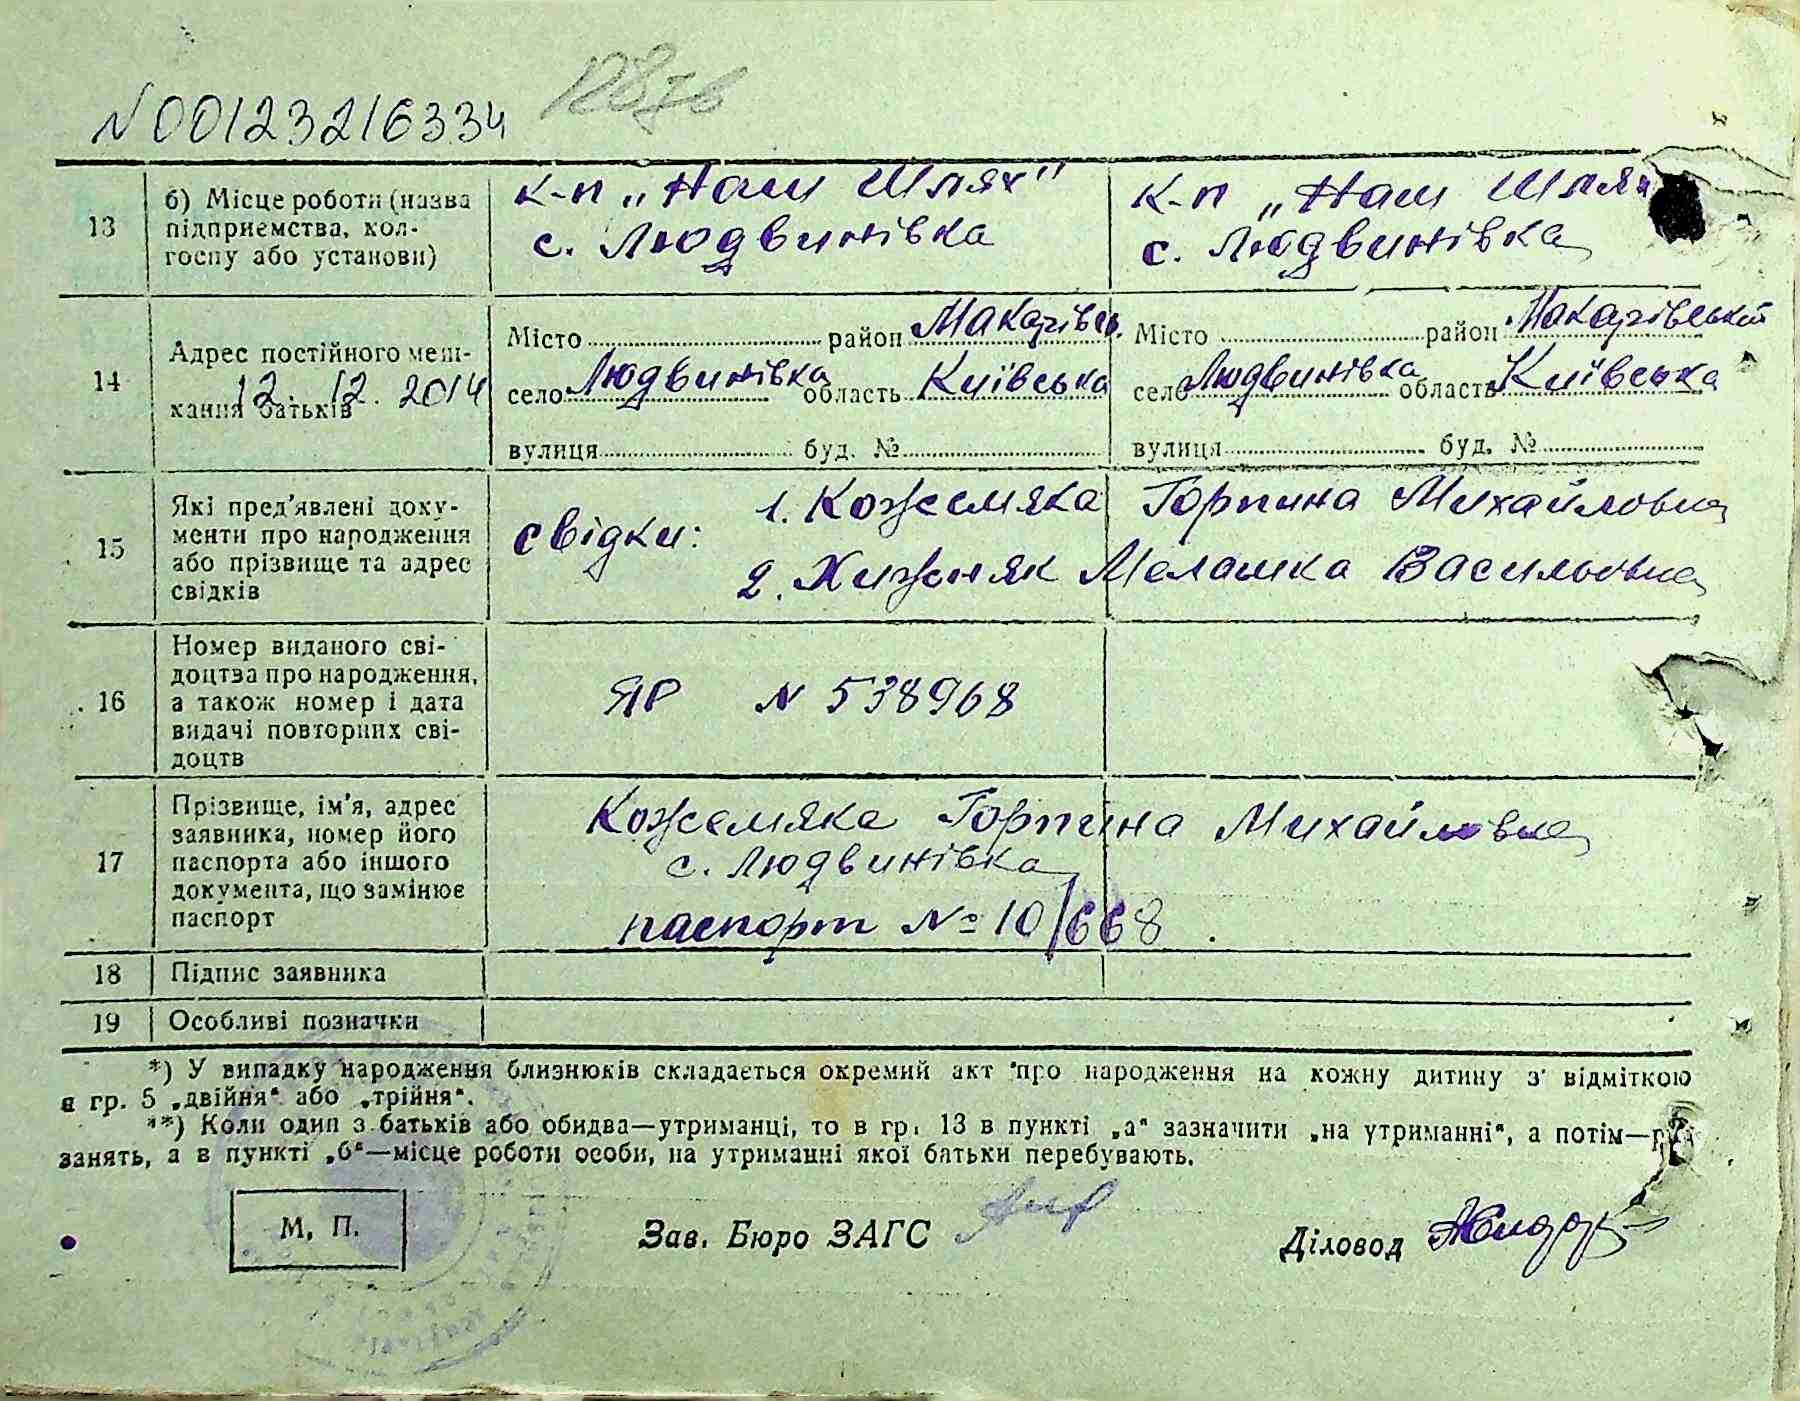 N00123216334
13 б) Місце роботи (назва підприємства, колгоспу або установи)
к-п „Наш Шлях"
с. Людвинівка
к-п „Наш Шлях
с. Людвинівка
14 Адрес постійного мешкання батьків
12. 12. 2014
Місто район Макарівсь.
село Людвинівка область Київська
вулиця буд. №
Місто район Макарівський
село Людвинівка область Київська
вулиця буд. №
15 Які пред'явлені документи про народження або прізвище та адрес свідків
свідки: 1. Кожемяка Горпина Михайловна
2. Хижняк Мелашка Васильовна
16 Номер виданого свідоцтва про народження, а також номер і дата видачі повторних свідоцтв
ЯР N 538968
17 Прізвище, ім'я, адрес заявника, номер його паспорта або іншого документа, що замінює паспорт
Кожемяка Горпина Михайловна
с. Людвинівка
паспорт № 10/668
18 Підпис заявника
19 Особливі позначки
*) У випадку народження близнюків складається окремий акт про народження на кожну дитину з відміткою
в гр. 5 „двійня“ або „трійня“.
**) Коли один з батьків або обидва—утриманці, то в гр. 13 в пункті „а“ зазначити „на утриманні“, а потім—
занять, а в пункті „б“—місце роботи особи, на утриманні якої батьки перебувають.
М. П.
Зав. Бюро ЗАГС
Діловод